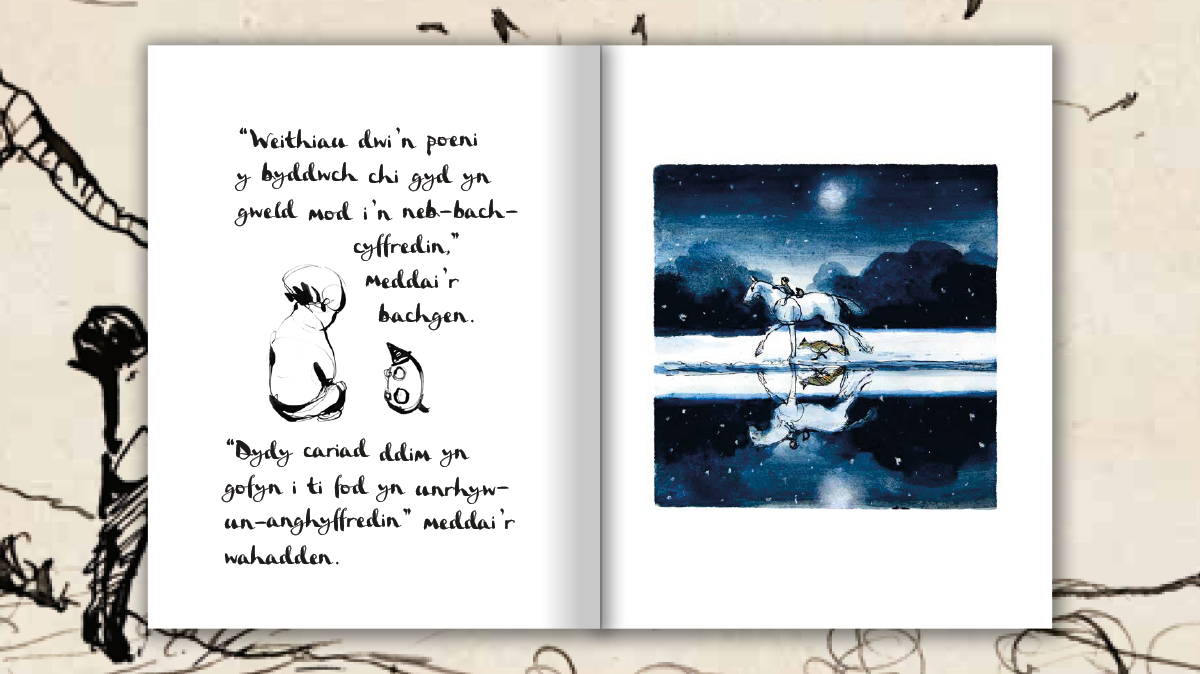 “Weithiau dwi’n poeni
y byddwch chi gyd yn
gweld mod i’n neb-bach-
cyffredin,”
meddai’r
bachgen.
“Dydy cariad ddim yn
gofyn i ti fod yn unrhyw-
un-anghyffredin” meddai’r
wahadden.